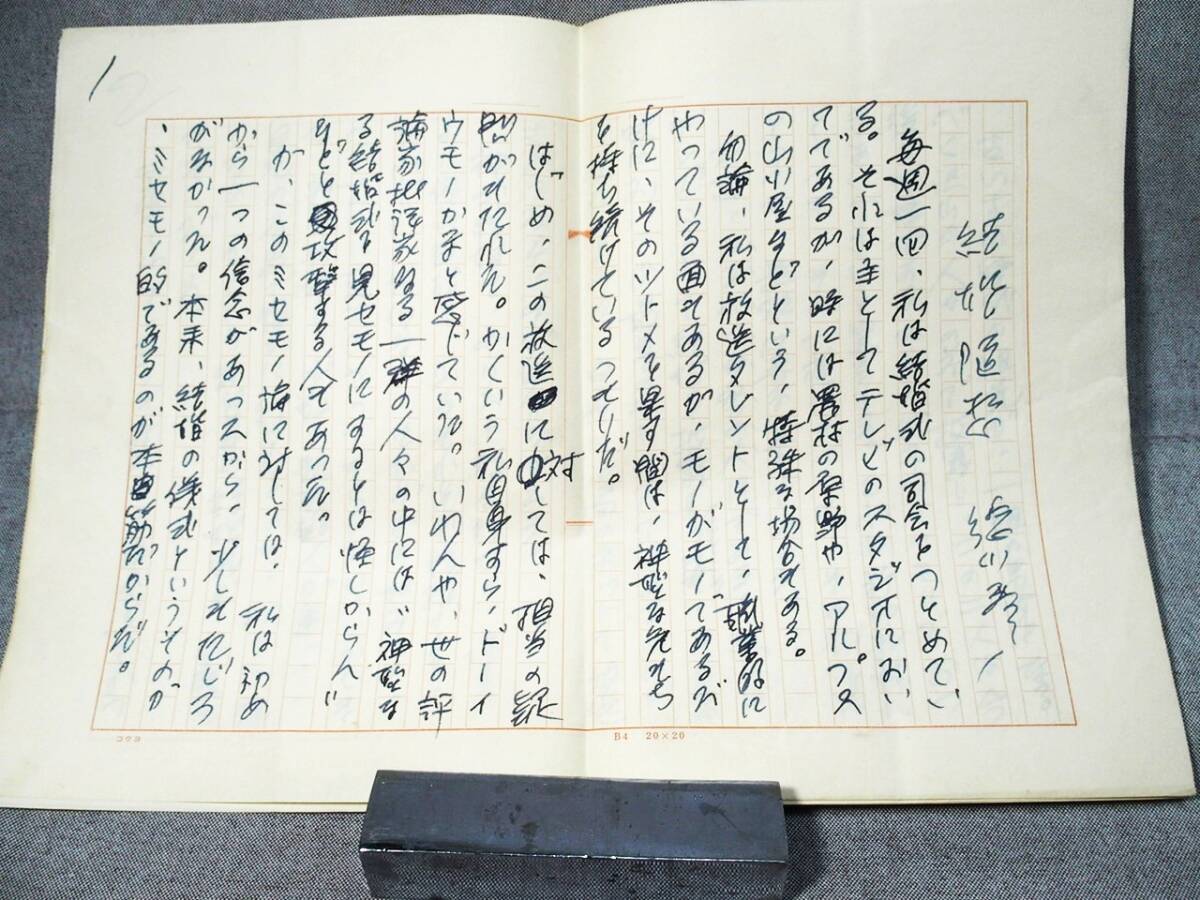 結婚随想 徳川夢声
毎週一回、私は結婚式の司会をつとめてい
る。それは主としてテレビのスタジオにおい
てであるが、時には農村の原野や、アルプス
の山小屋などという、特殊な場合もある。
勿論、私は放送タレントとして、職業的に
やっている面もあるが、モノがモノであるだ
けに、そのツトメを果す間は、神聖な気もち
を持ち続けているつもりだ。
はじめ、この放送に対しては、担当の
がもたれた。かくいう私自身すら、ドーイ
ウモノかなと感じていた。いわんや、世の評
論家批評家なる一群の人々の中には"神聖な
る結婚式を見セモノにするとは怪しからん"
などと攻撃する人もあった。
が、このミセモノ論に対しては、私は初め
から一つの信念があったから、少しもたじろ
がなかった。本来、結婚の儀式というものが
、ミセモノ的であるのが本筋だからだ。
1
コクヨ
B4 20×20